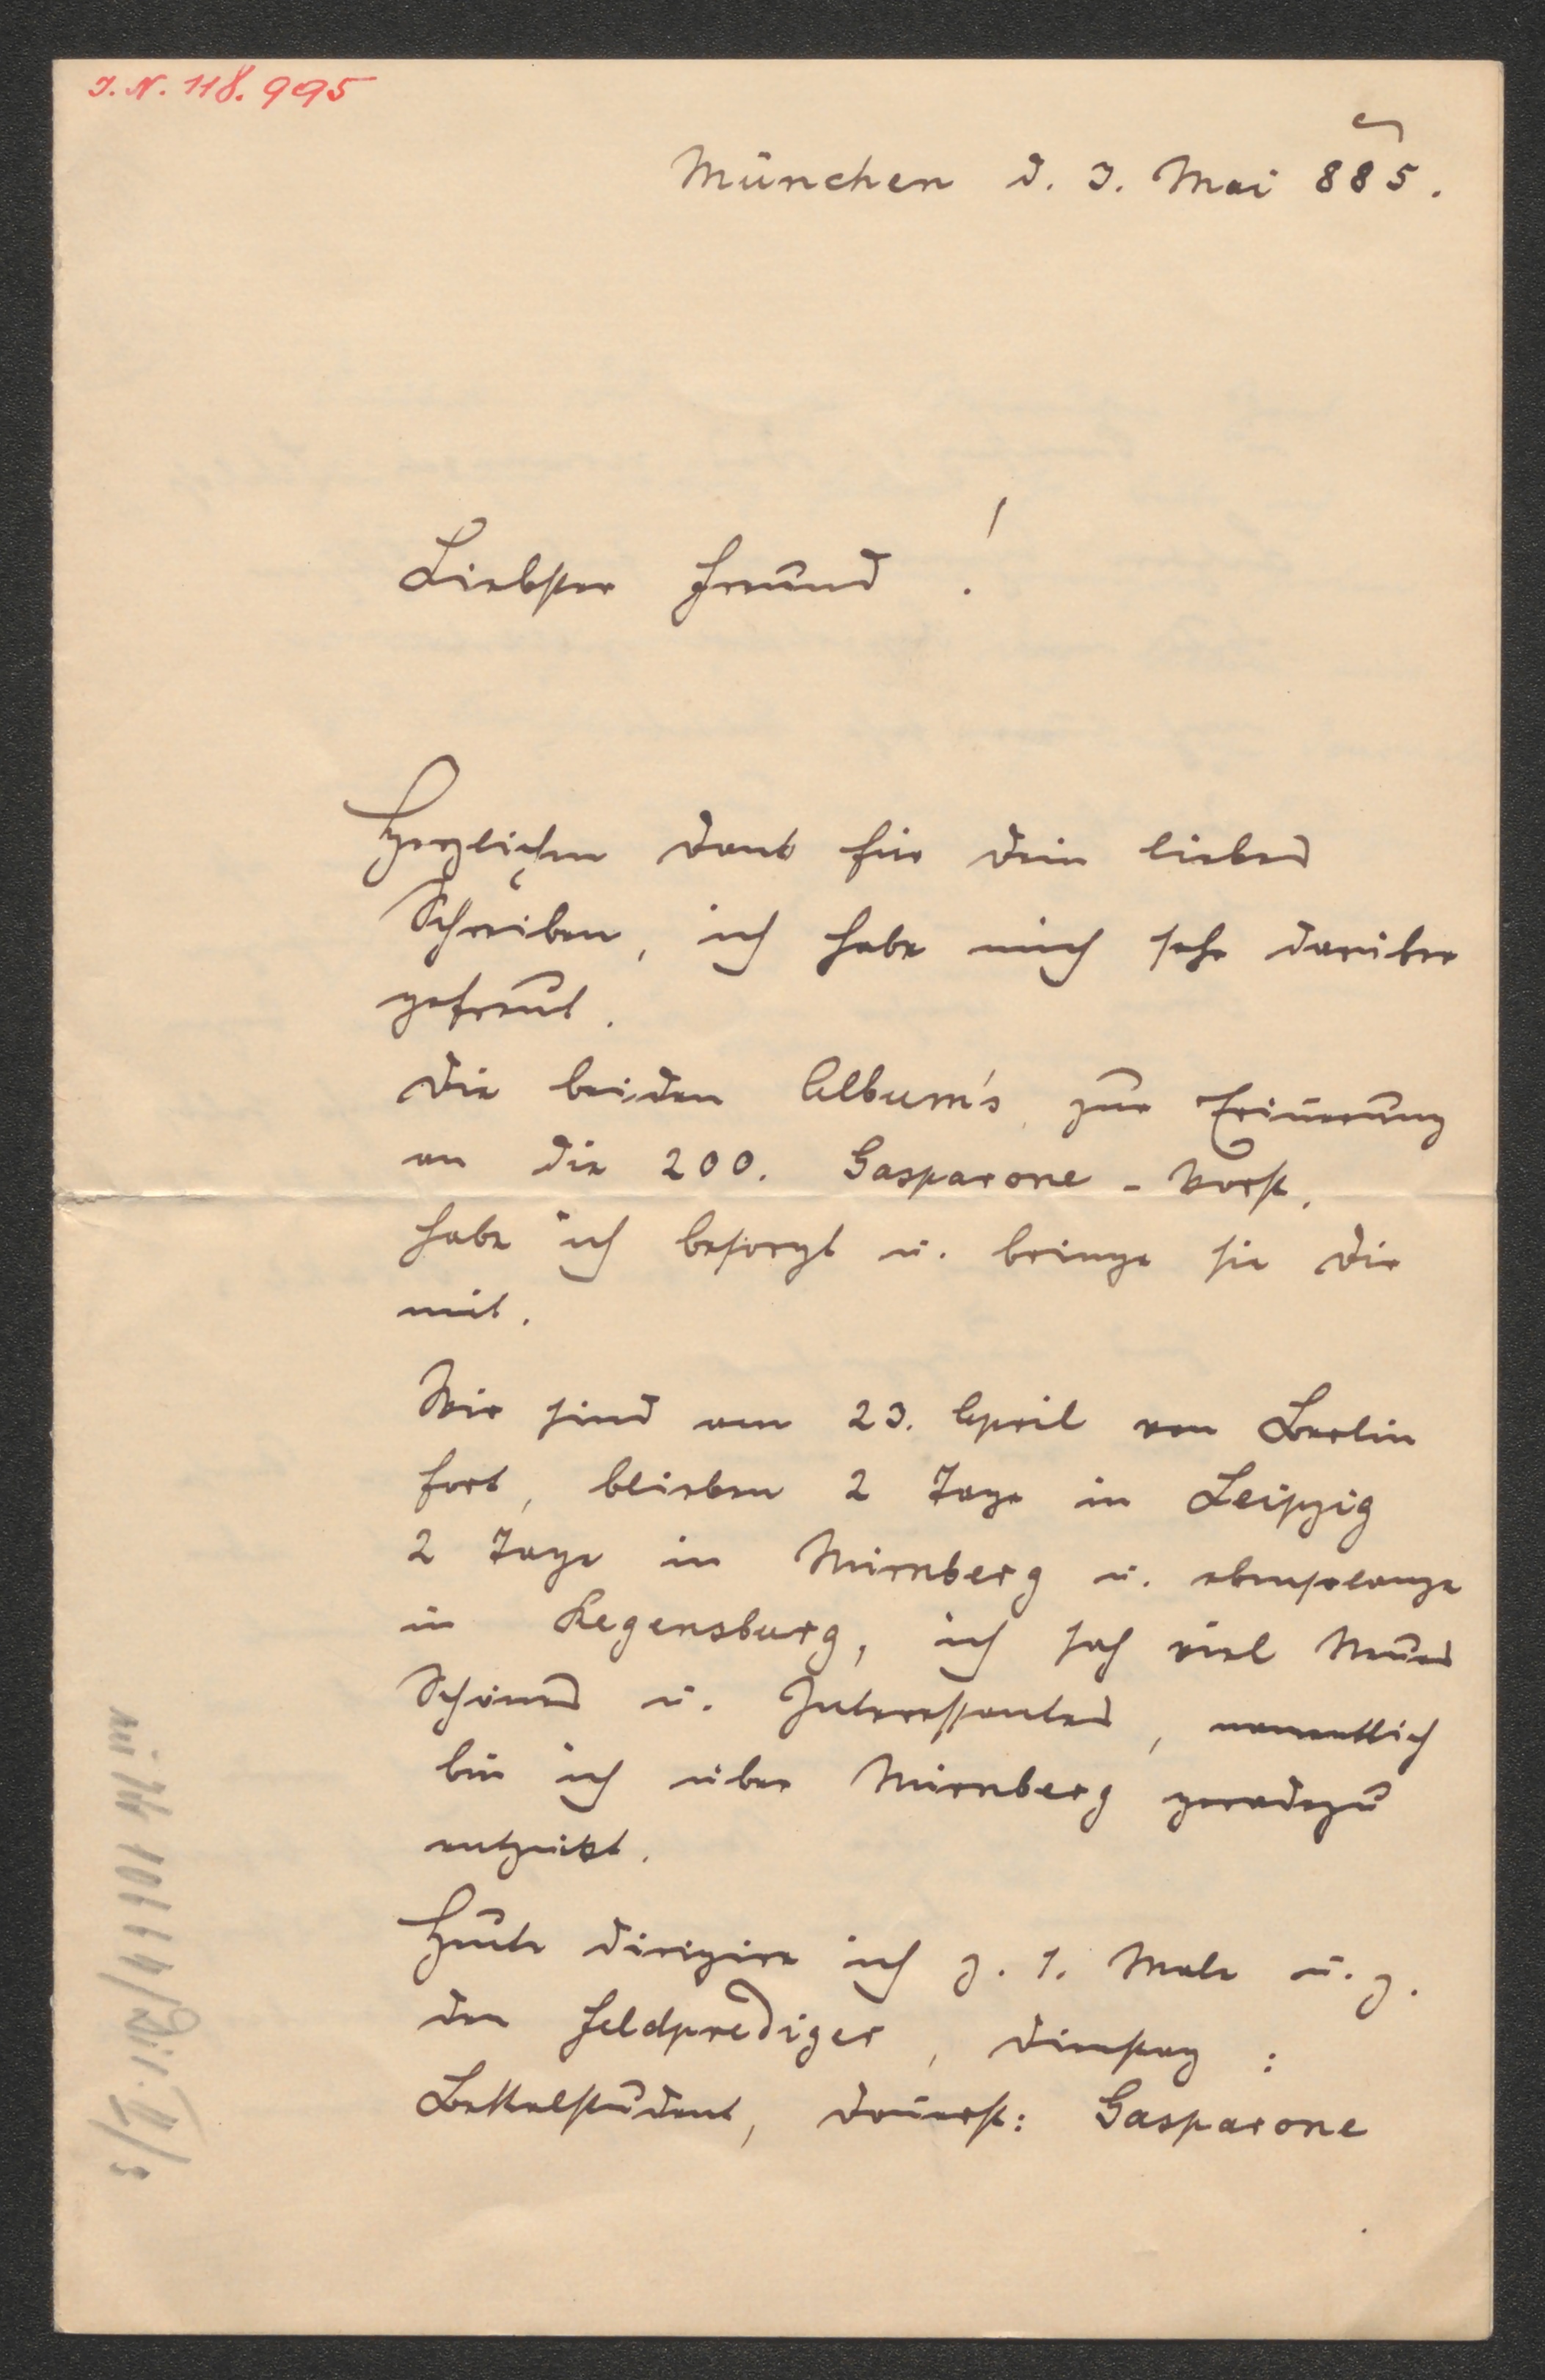 J. N. 118.995
München d. 3. Mai 885.
Liebster Freund!
Herzlichen Dank für Dein liebes
Schreiben, ich habe mich sehr darüber
gefreut.
Die beiden Album's zur Erinerung
an die 200. Gasparone-Vorst.
habe ich besorgt u. bringe sie Dir
mit.
Wir sind am 23. April von Berlin
fort, blieben 2 Tage in Leipzig
2 Tage in Nürnberg u. ebensolange
in Regensburg, ich sah viel Neues
Schönes u. Interessantes, namentlich
bin ich über Nürnberg geradezu
entzückt.
Heute dirigire ich z. 1. Male u. z.
den Feldprediger, Dienstag:
Bettelstudent, Donerst: Gasparone